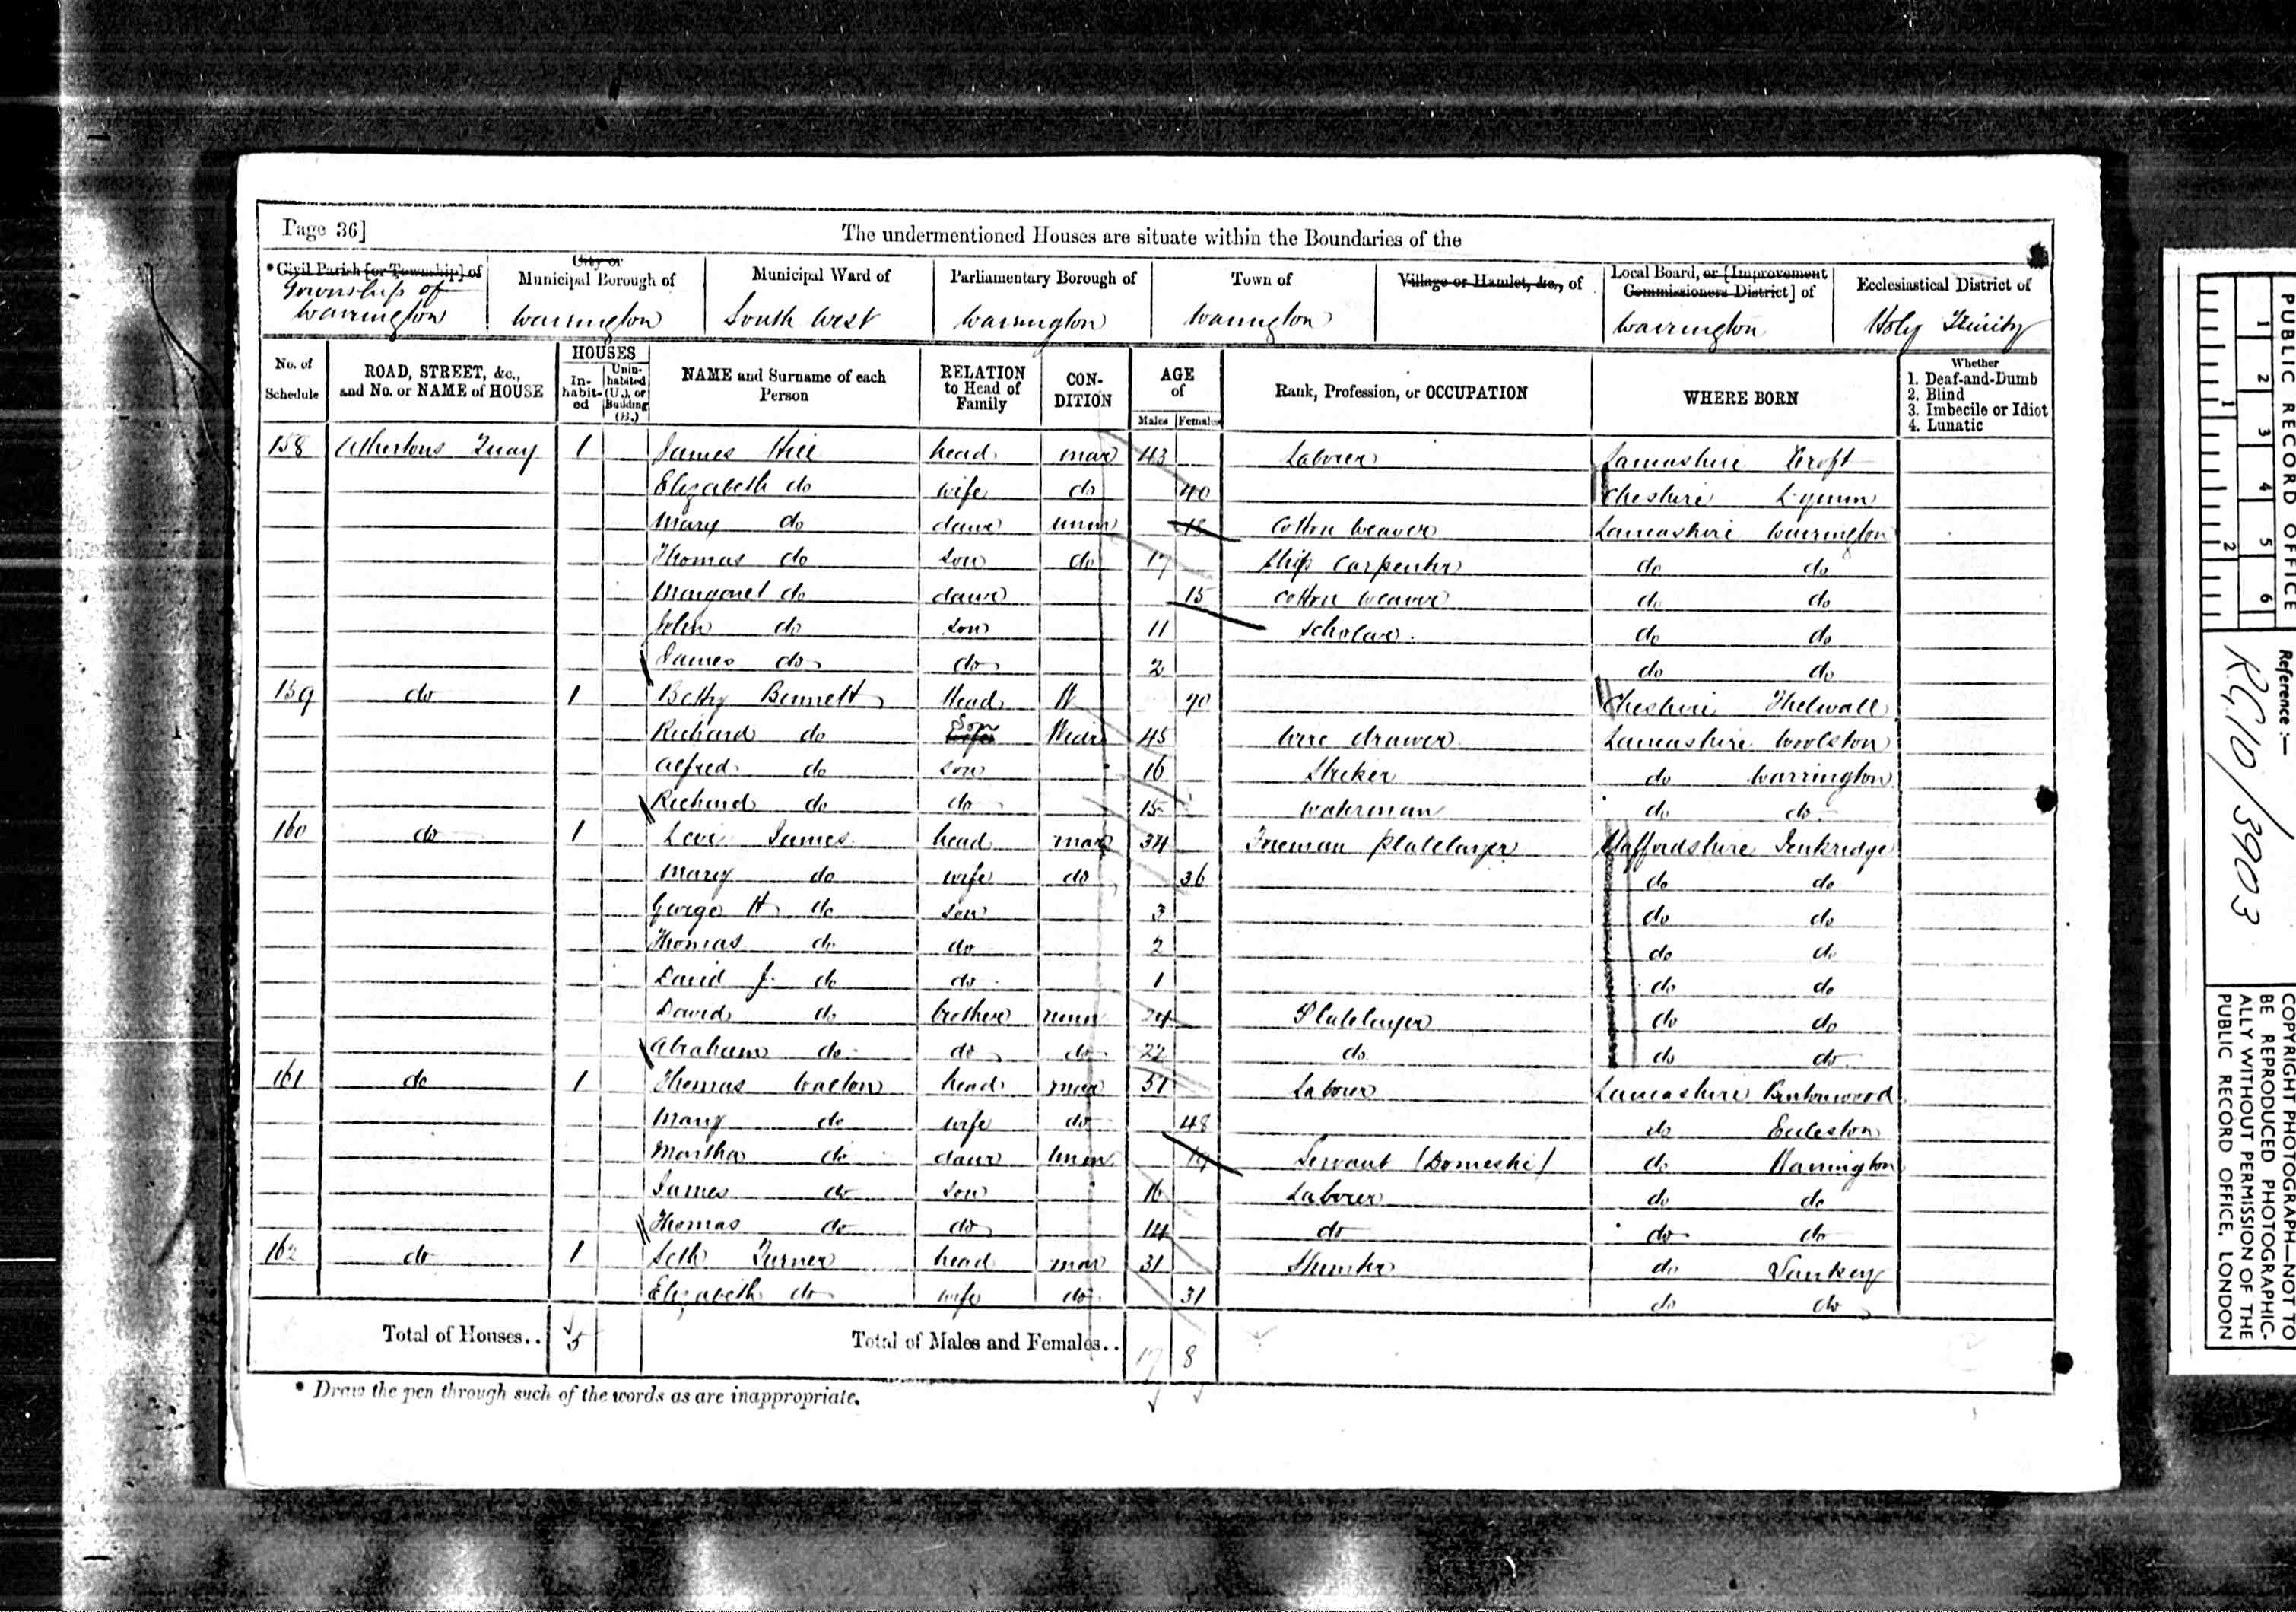 Page 36]
The undermentioned Houses are situate within the Boundaries of the
*Civil Parish [or Township] of
City or Municipal Borough of
Municipal Ward of
Parliamentary Borough of
Town of
Village or Hamlet, &c., of
Local Board, or [Improvement Commissioners District] of
Ecclesiastical District of
Township of Warrington
Warrington
South West
Warrington
Warrington
Warrington
Holy Trinity
No. of Schedule
ROAD, STREET, &c., and No. or NAME of HOUSE
HOUSES
In-habit-ed
Unin-habited (U.), or Building (B.)
NAME and Surname of each Person
RELATION to Head of Family
CON-DITION
AGE of
Males
Females
Rank, Profession, or OCCUPATION
WHERE BORN
Whether
1. Deaf-and-Dumb
2. Blind
3. Imbecile or Idiot
4. Lunatic
158 Athertons Quay 1 James Hill head mar 43 Laborer Lancashire Croft
Elizabeth do wife do 40 Cheshire Lymm
Mary do daur unm 18 Cotton Weaver Lancashire Warrington
Thomas do son do 17 Ship Carpenter do do
Margaret do daur 15 Cotton Weaver do do
John do son 11 Scholar do do
James do do 2 do do
159 do 1 Betty Bennett Head W 70 Cheshire Thelwall
Richard do Son Mar 45 Wire drawer Lancashire Woolston
Alfred do son 16 Striker do Warrington
Richard do do 15 Waterman do do
160 do 1 Levi James head mar 34 Foreman Platelayer Staffordshire Penkridge
Mary do wife do 36 do do
George H do son 3 do do
Thomas do do 2 do do
David J. do do 1 do do
David do brother unm 24 Platelayer do do
Abraham do do do 22 do do do
161 do 1 Thomas Walton head mar 51 Laborer Lancashire Burtonwood
Mary do wife do 48 do Eccleston
Martha do daur unm 19 Servant (Domestic) do Warrington
James do son 16 Laborer do do
Thomas do do 14 do do do
162 do 1 Seth Turner head mar 31 do Sankey
Elizabeth do wife do 31 do do
Total of Houses.. 5
Total of Males and Females.. 17 8
* Draw the pen through such of the words as are inappropriate.
PUBLIC RECORD OFFICE
1 2 3 4 5 6
1 2
Reference :—
RG10/3903
COPYRIGHT PHOTOGRAPH—NOT TO
BE REPRODUCED PHOTOGRAPHIC-
ALLY WITHOUT PERMISSION OF THE
PUBLIC RECORD OFFICE, LONDON